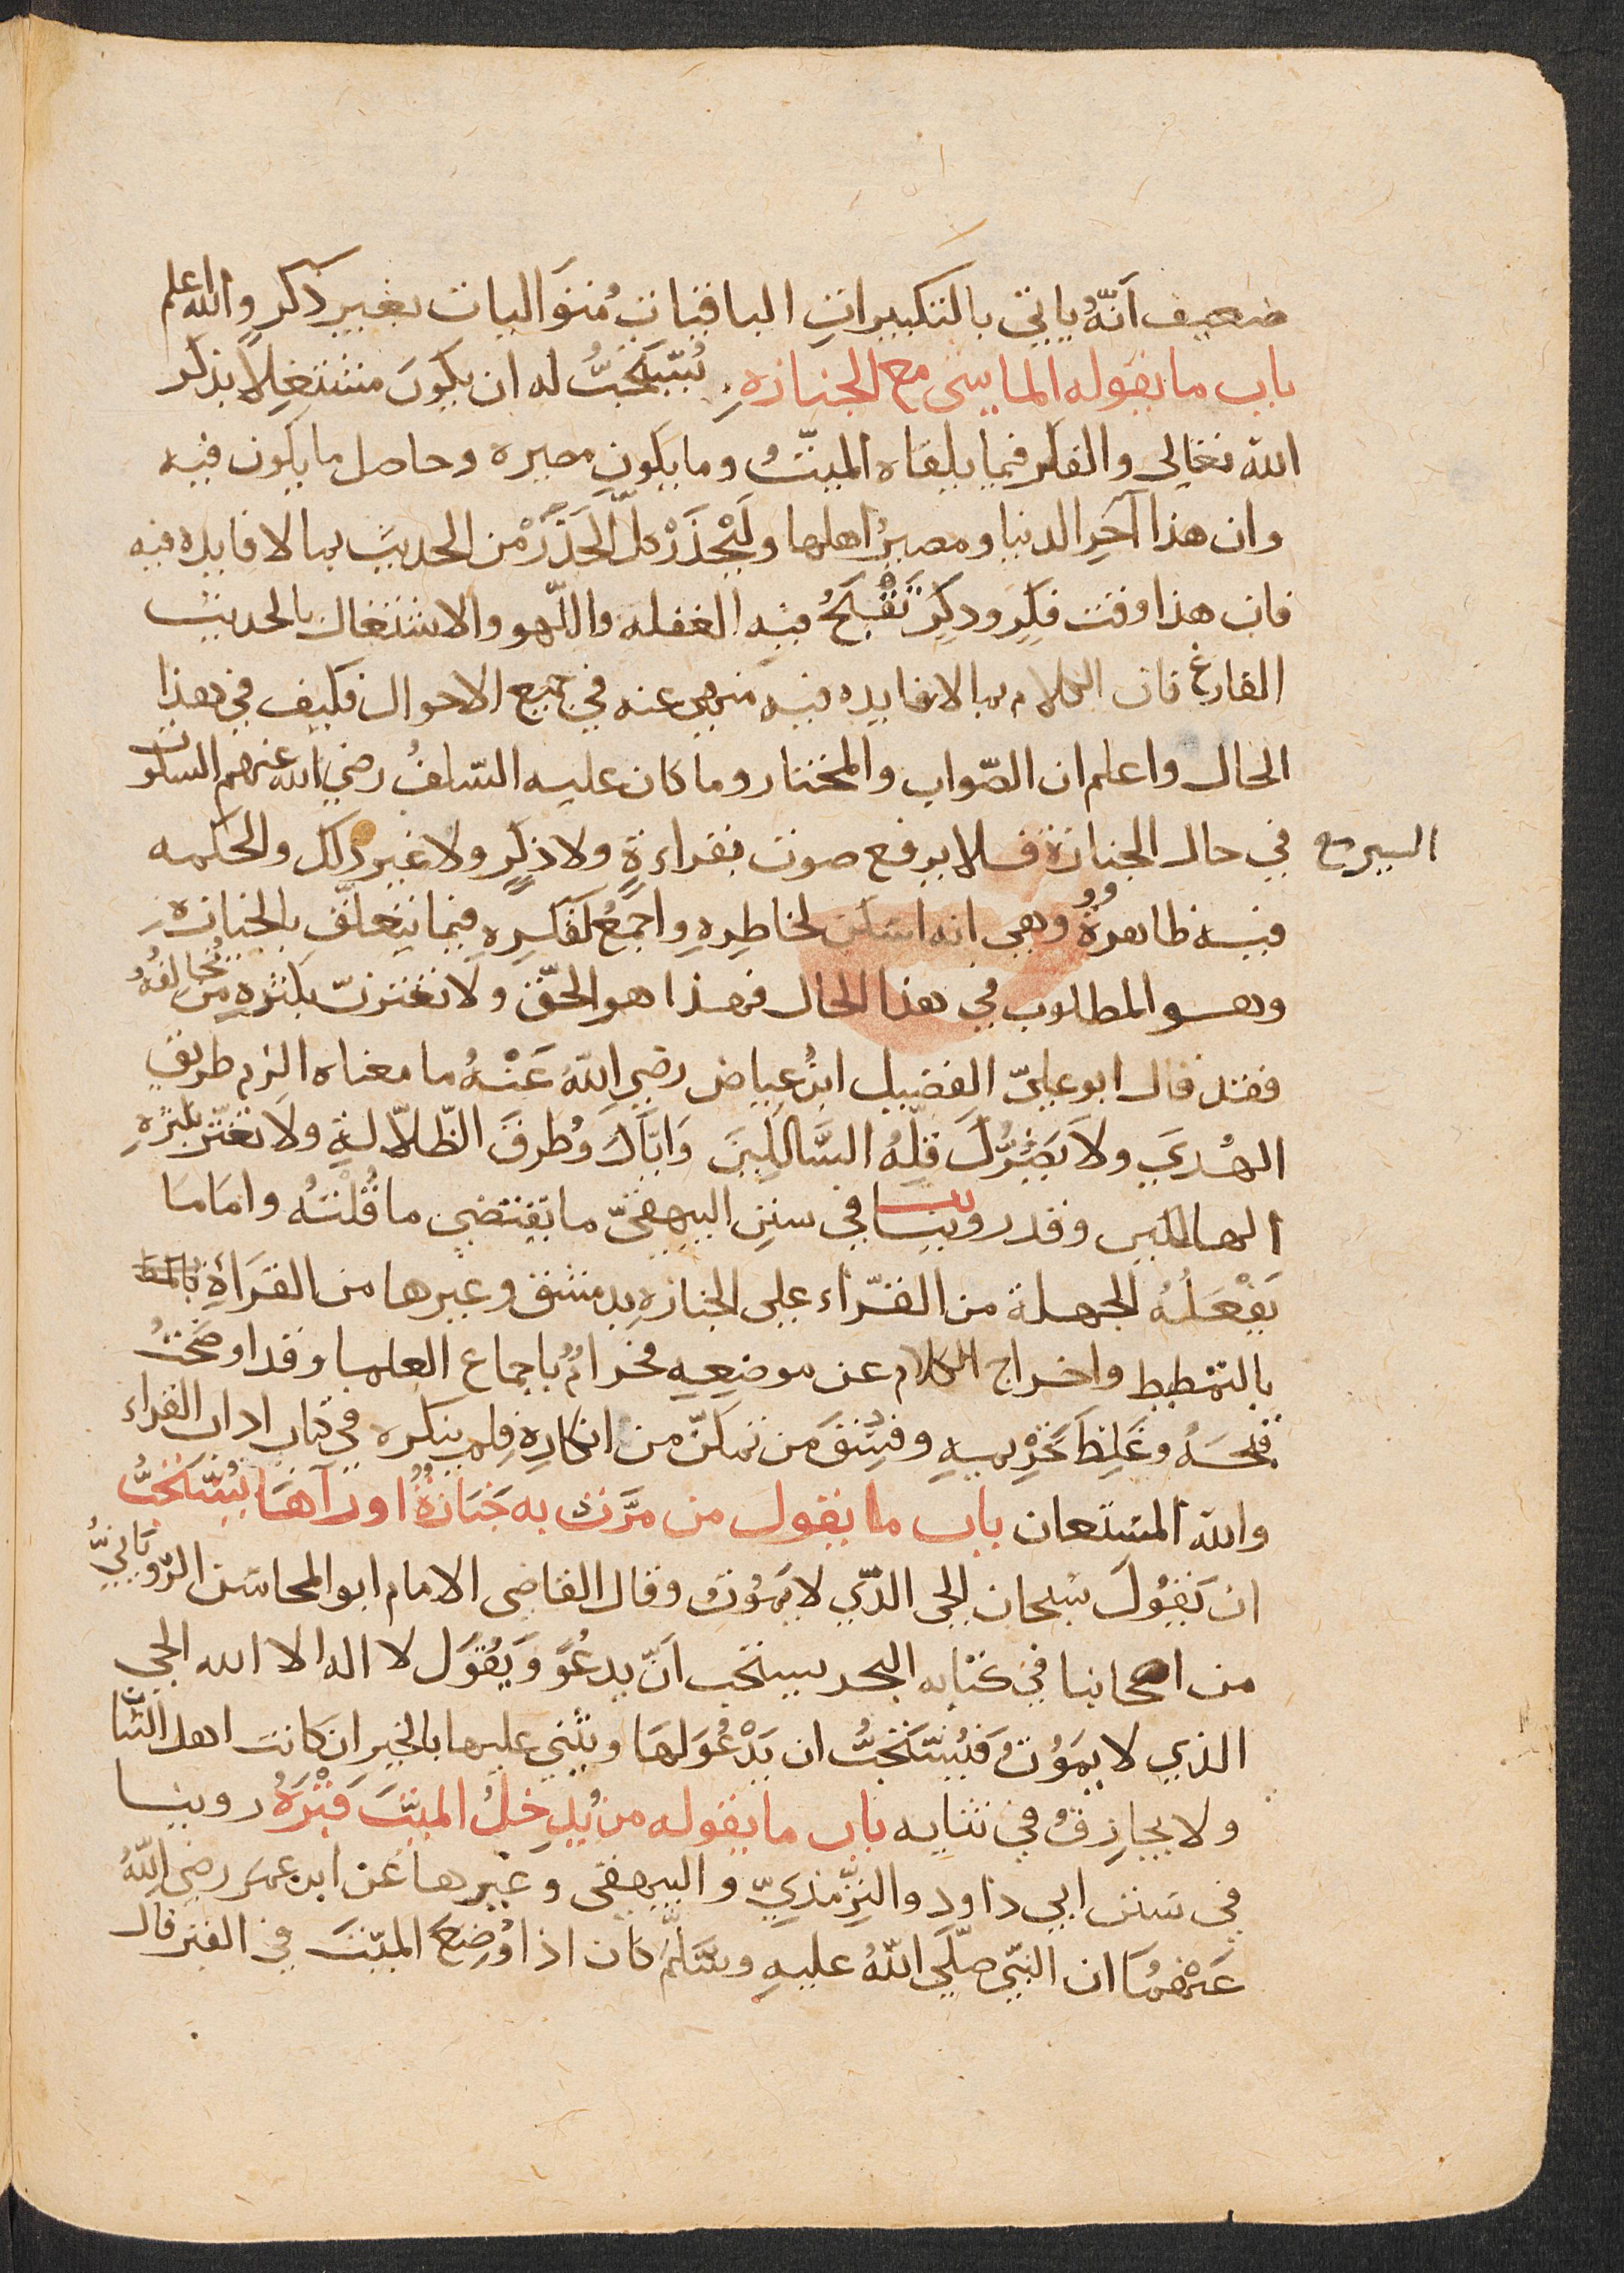 ضعيف أنَّهُ ياتي بالتكبيراتِ الباقياتِ مُتَوَاليات بغير ذكرٍ والله اعلم
باب ما يقوله الماشى مع الجنازه يُسْتَحَبُّ له ان يكونَ مشتغِلاً بذكر
الله تعالى والفكر فيما يلقاه الميتُ وما يكون مصيره وحاصل ما يكون فيه
وان هذا آخر الدنيا ومصيرُ اهلها ولْيَحْذَرْ كلَّ الحَذَرْ من الحديث بما لا فايده فيه
فان هذا وقت فِكِر وذكِر تَقْبَحُ فيه الغفله واللّهو والاشتغال بالحديث
الفارغ فان الكلام بما لا فايده فيه منهى عنه في جميع الاحوال فكيف في هذا
الحال واعلم ان الصّواب والمختار وما كان عليه السّلفُ رضي الله عنهم السكوت
في حال السير مع الجنازة فلا يرفع صوت بقراءةٍ ولا ذِكرٍ ولا غير ذلك والحكمه
فيه ظاهرةٌ وهي انه اسكن لخاطِرِهِ واجمَعُ لفكرِهِ فيما يتعلّق بالجنازه
وهو المطلوب في هذا الحال فهذا هو الحقّ ولا تغترنّ بكثرةِ من يُخالفُهُ
فقد قال ابو عليّ الفضيل ابنُ عياض رضي الله عَنْهُ ما معناه الزم طريق
الهُدَي ولا يَضُرُّكَ قلّهُ السَّالكينَ وَايّاكَ وطُرقَ الظّلالةِ ولا تغترّ بكثرةِ
الهالكين وقد روينا في سننِ البيهقيّ ما يقتضي ما قُلْتُه واما ما
يَفْعَلُهُ الجهلة من القرّاء على الجنازهِ بدمشق وغيرها من القرَاةِ
بالتمطيط واخراج الكلام عن موضِعِهِ فحرامٌ باجماع العلما وقد اوضحْتُ
قبحَهُ وغَلِظَ تحْرِيمِهِ وفِسْقَ من تمكّن من انكارِهِ فلم ينكره في كتاب اداب القراء
والله المستعان باب ما يقول من مرَّت به جَنَازةٌ او رآهَا يُسْتَحَبُّ
ان يَقُولَ سُبحان الحي الذّي لا يَمُوتُ وقال القاضي الامام ابو المحاسن الرّوياني
من اصحابنا في كتابه البحر يستحب أنّ يدعُوَ وَيَقُوَل لا اله الا الله الحي
الذي لا يموُتُ فَيُسْتَحَبُّ ان يَدْعُوَ لهَا ويثني عليها بالخير ان كانت اهل الثنا
ولا يجازفُ في ثنايه باب ما يقوله من يُدخِلُ الميّتَ قَبْرَهُ روينا
في سنن ابي داود والتِّرمذيِّ والبيهقي وغيرها عَن ابن عمر رضي اللّهُ
عَنْهُمَا ان النبّي صلَّي اللّهُ عليهِ وسَلَّم كان اذا وُضِعَ الميّت في القبر قال